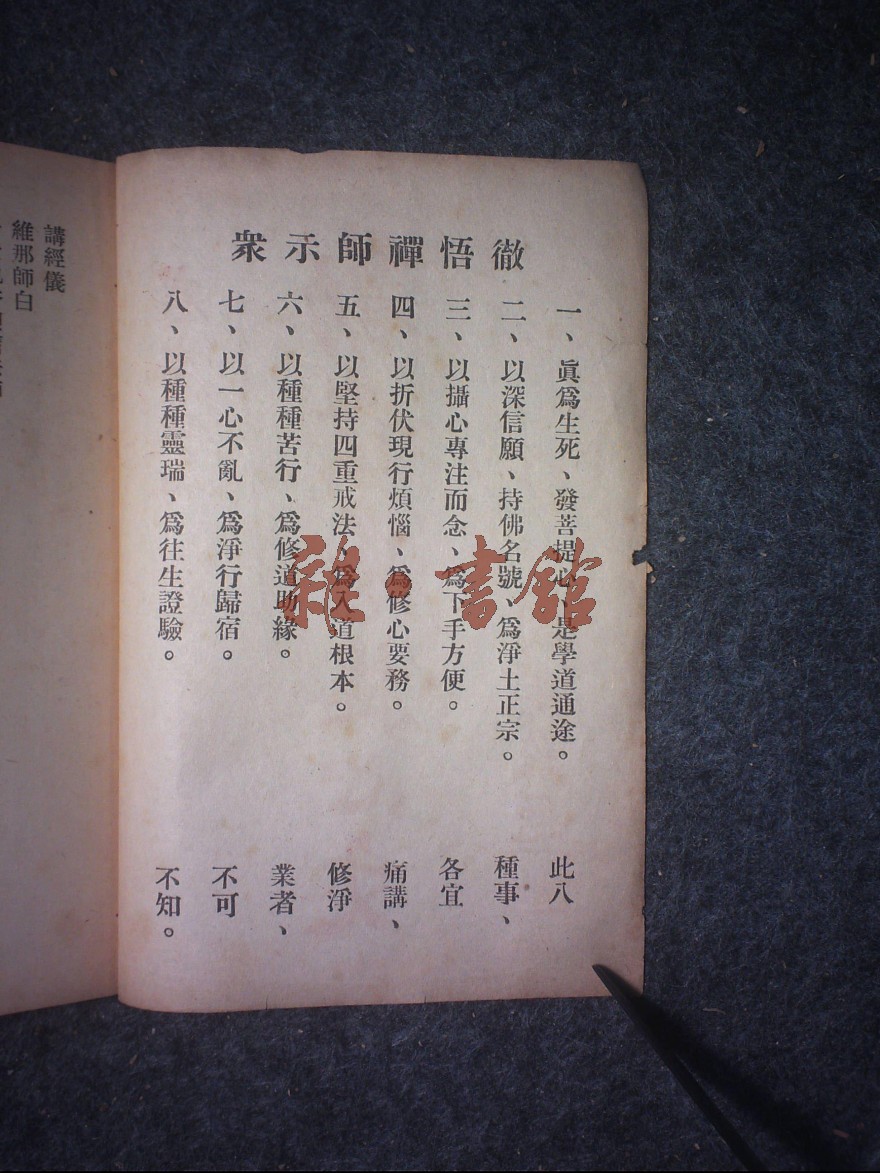 徹悟禪師示衆
一、眞爲生死、發菩提心、是學道通途。
二、以深信願、持佛名號、爲淨土正宗。
三、以攝心專注而念、爲下手方便。
四、以折伏現行煩惱、爲修心要務。
五、以堅持四重戒法、爲入道根本。
六、以種種苦行、爲修道助緣。
七、以一心不亂、爲淨行歸宿。
八、以種種靈瑞、爲往生證驗。
此八
種事、
各宜
痛講、
修淨
業者、
不可
不知。
講經儀
維那師白
雜·書館